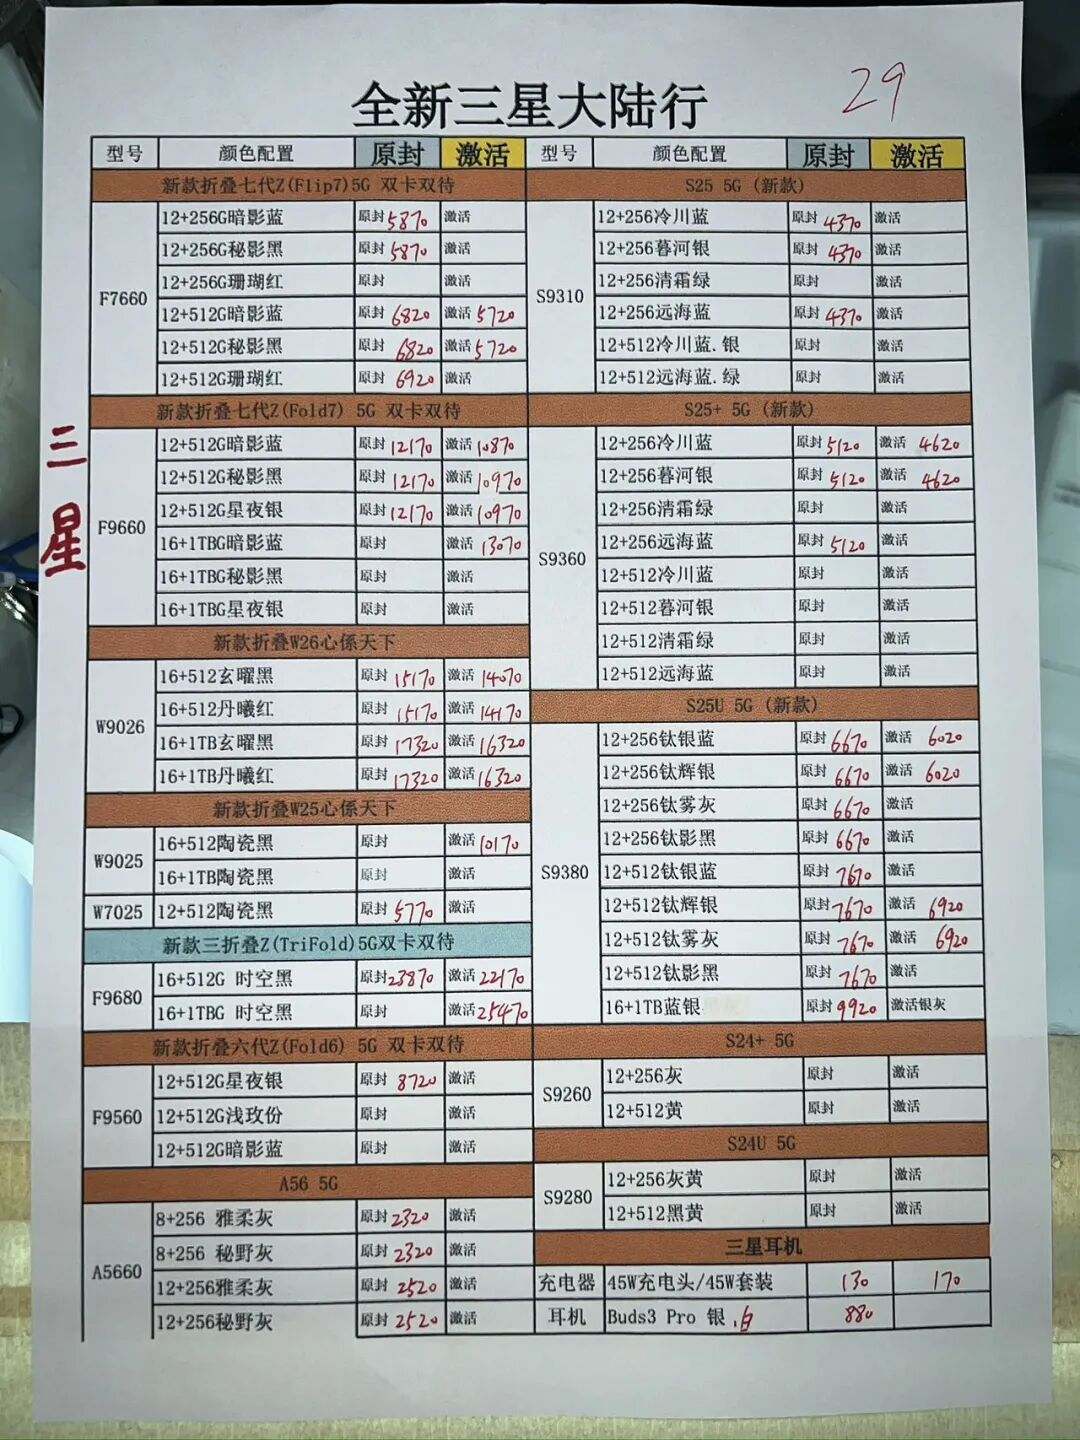 全新三星大陆行
29
三星
型号 颜色配置 原封 激活
新款折叠七代Z(Flip7)5G 双卡双待
F7660
12+256G暗影蓝 原封 5870 激活
12+256G秘影黑 原封 5870 激活
12+256G珊瑚红 原封 激活
12+512G暗影蓝 原封 6820 激活 5720
12+512G秘影黑 原封 6820 激活 5720
12+512G珊瑚红 原封 6920 激活
新款折叠七代Z(Fold7) 5G 双卡双待
F9660
12+512G暗影蓝 原封 12170 激活 10870
12+512G秘影黑 原封 12170 激活 10970
12+512G星夜银 原封 12170 激活 10970
16+1TBG暗影蓝 原封 激活 13070
16+1TBG秘影黑 原封 激活
16+1TBG星夜银 原封 激活
新款折叠W26心係天下
W9026
16+512玄曜黑 原封 15170 激活 14070
16+512丹曦红 原封 15170 激活 14170
16+1TB玄曜黑 原封 17320 激活 16320
16+1TB丹曦红 原封 17320 激活 16320
新款折叠W25心係天下
W9025
16+512陶瓷黑 原封 激活 10170
16+1TB陶瓷黑 原封 激活
W7025 12+512陶瓷黑 原封 5770 激活
新款三折叠Z(TriFold)5G双卡双待
F9680
16+512G 时空黑 原封 23870 激活 22170
16+1TBG 时空黑 原封 激活 25470
新款折叠六代Z(Fold6) 5G 双卡双待
F9560
12+512G星夜银 原封 8720 激活
12+512G浅玫份 原封 激活
12+512G暗影蓝 原封 激活
A56 5G
A5660
8+256 雅柔灰 原封 2320 激活
8+256 秘野灰 原封 2320 激活
12+256雅柔灰 原封 2520 激活
12+256秘野灰 原封 2520 激活
型号 颜色配置 原封 激活
S25 5G (新款)
S9310
12+256冷川蓝 原封 4370 激活
12+256暮河银 原封 4370 激活
12+256清霜绿 原封 激活
12+256远海蓝 原封 4370 激活
12+512冷川蓝.银 原封 激活
12+512远海蓝.绿 原封 激活
S25+ 5G (新款)
S9360
12+256冷川蓝 原封 5120 激活 4620
12+256暮河银 原封 5120 激活 4620
12+256清霜绿 原封 激活
12+256远海蓝 原封 5120 激活
12+512冷川蓝 原封 激活
12+512暮河银 原封 激活
12+512清霜绿 原封 激活
12+512远海蓝 原封 激活
S25U 5G (新款)
S9380
12+256钛银蓝 原封 6670 激活 6020
12+256钛辉银 原封 6670 激活 6020
12+256钛雾灰 原封 6670 激活
12+256钛影黑 原封 6670 激活
12+512钛银蓝 原封 7670 激活
12+512钛辉银 原封 7670 激活 6920
12+512钛雾灰 原封 7670 激活 6920
12+512钛影黑 原封 7670 激活
16+1TB蓝银 原封 9920 激活银灰
S24+ 5G
S9260
12+256灰 原封 激活
12+512黄 原封 激活
S24U 5G
S9280
12+256灰黄 原封 激活
12+512黑黄 原封 激活
三星耳机
充电器 45W充电头/45W套装 130 170
耳机 Buds3 Pro 银.白 880